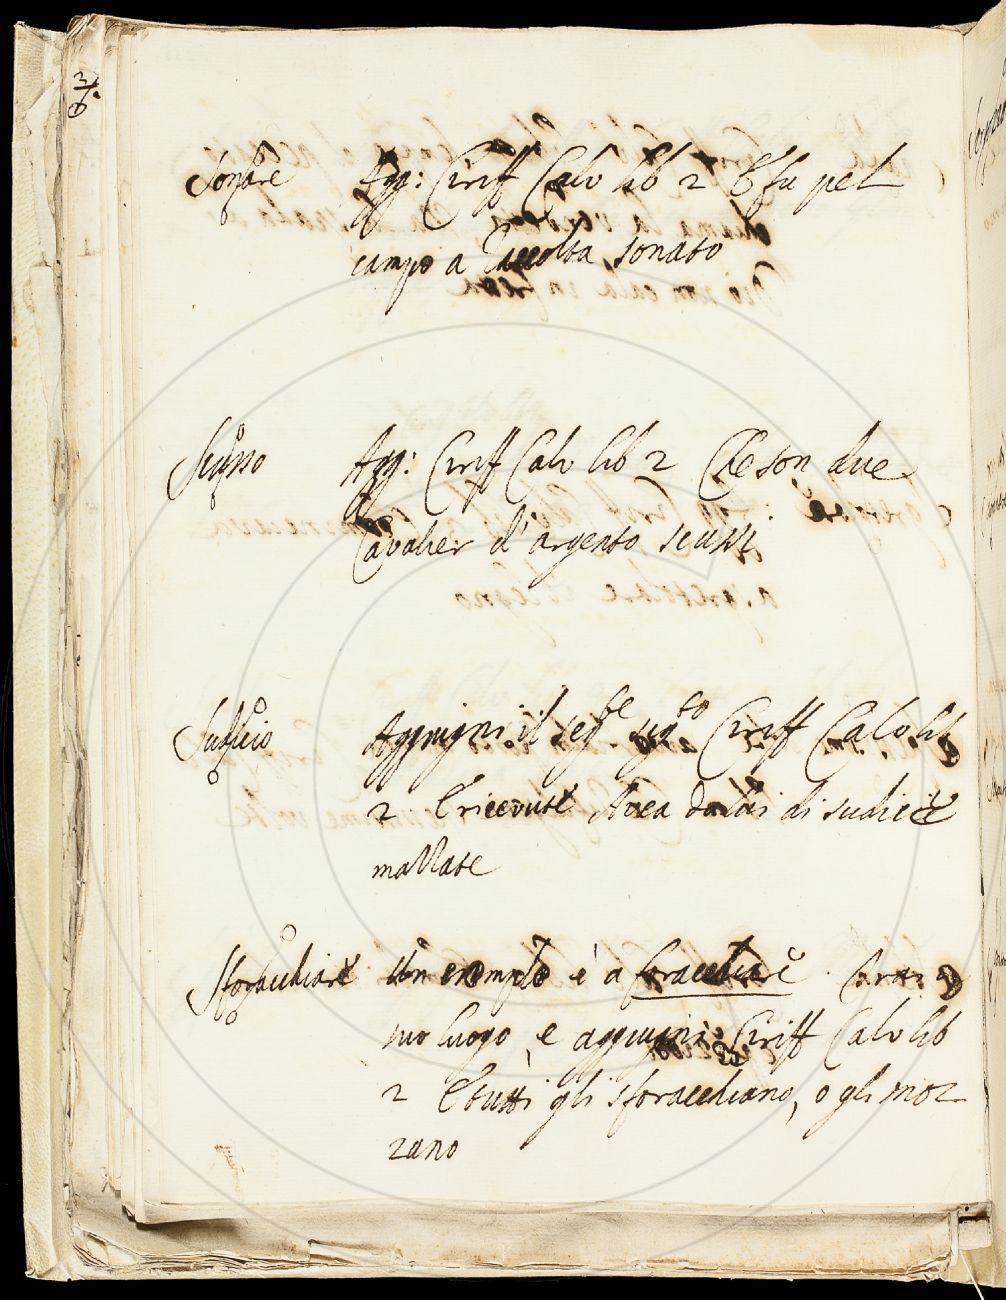 Sonare Agg: Ciriff Calv lib 2 E fu pel
campo a raccolta sonato
Scusso Agg: Ciriff Calv lib 2 Che son due
Cavalier d'argento scussi
Sudicio Aggiugni il seg.te sig.to Ciriff Calv lib
2 E ricevute avea da lui di sudicie
mazzate
Sforacchiare Un exemplo è a foracchiare
suo luogo, e aggiugni: Ciriff Calv lib
2 E tutti gli sforacchiano, o gli moz
zano